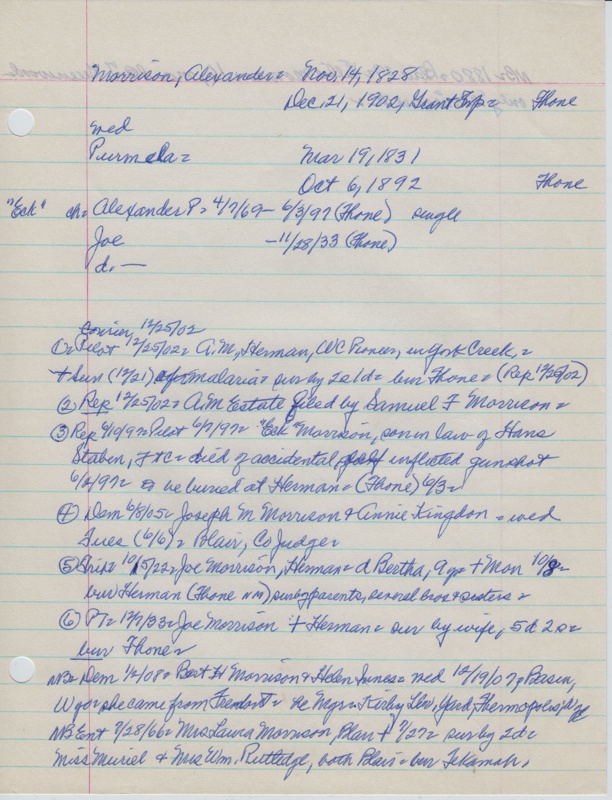 Morrison, Alexander = Nov. 14, 1828
Dec. 21, 1902, Grant Twp = Thone
wed
Purmela = Mar 19, 1831
Oct 6, 1892 Thone
"Eck" ch = Alexander P. = 4/7/69 - 6/3/97 (Thone) single
Joe - 11/28/33 (Thone)
d. —
Courier 12/25/02
① = Pilot 12/25/02 = A.M., Herman, WC Pioneer, in York Creek, =
+ Sun (12/21) of malaria = sur by 2s 1d = bur Thone = (Rep 12/25/02)
② Rep 12/25/02 = A.M. Estate filed by Samuel F Morrison =
③ Rep 6/10/97 = Pilot 6/7/97 = "Eck" Morrison, son in law of Hans
Staben, = died of accidental, inflicted gunshot
6/2/97 = be buried at Herman = (Thone) 6/3 =
④ Dem 6/8/05 = Joseph M Morrison & Annie Kingdon = wed
Tues (6/6) = Blair, Co Judge =
⑤ Trib = 10/5/22 = Joe Morrison, Herman = d Bertha, 9 yr = + Mon 10/8 =
bur Herman (Thone NM) sur by parents, several bros & sisters =
⑥ PT = 12/7/33 = Joe Morrison + Herman = sur by wife, 5d 2s =
bur Thone =
NB = Dem 12/08 = Bert H Morrison & Helen Innes = wed 12/19/07, Basin,
Wyo = she came from Fremont = he Mgr = Kirby Lbr, Yard, Thermopolis, Wyo
NB Ent 7/28/66 = Mrs Laura Morrison, Blair + 7/27 = sur by 2d =
Miss Muriel & Mrs Wm. Rutledge, both Blair = bur Tekamah.